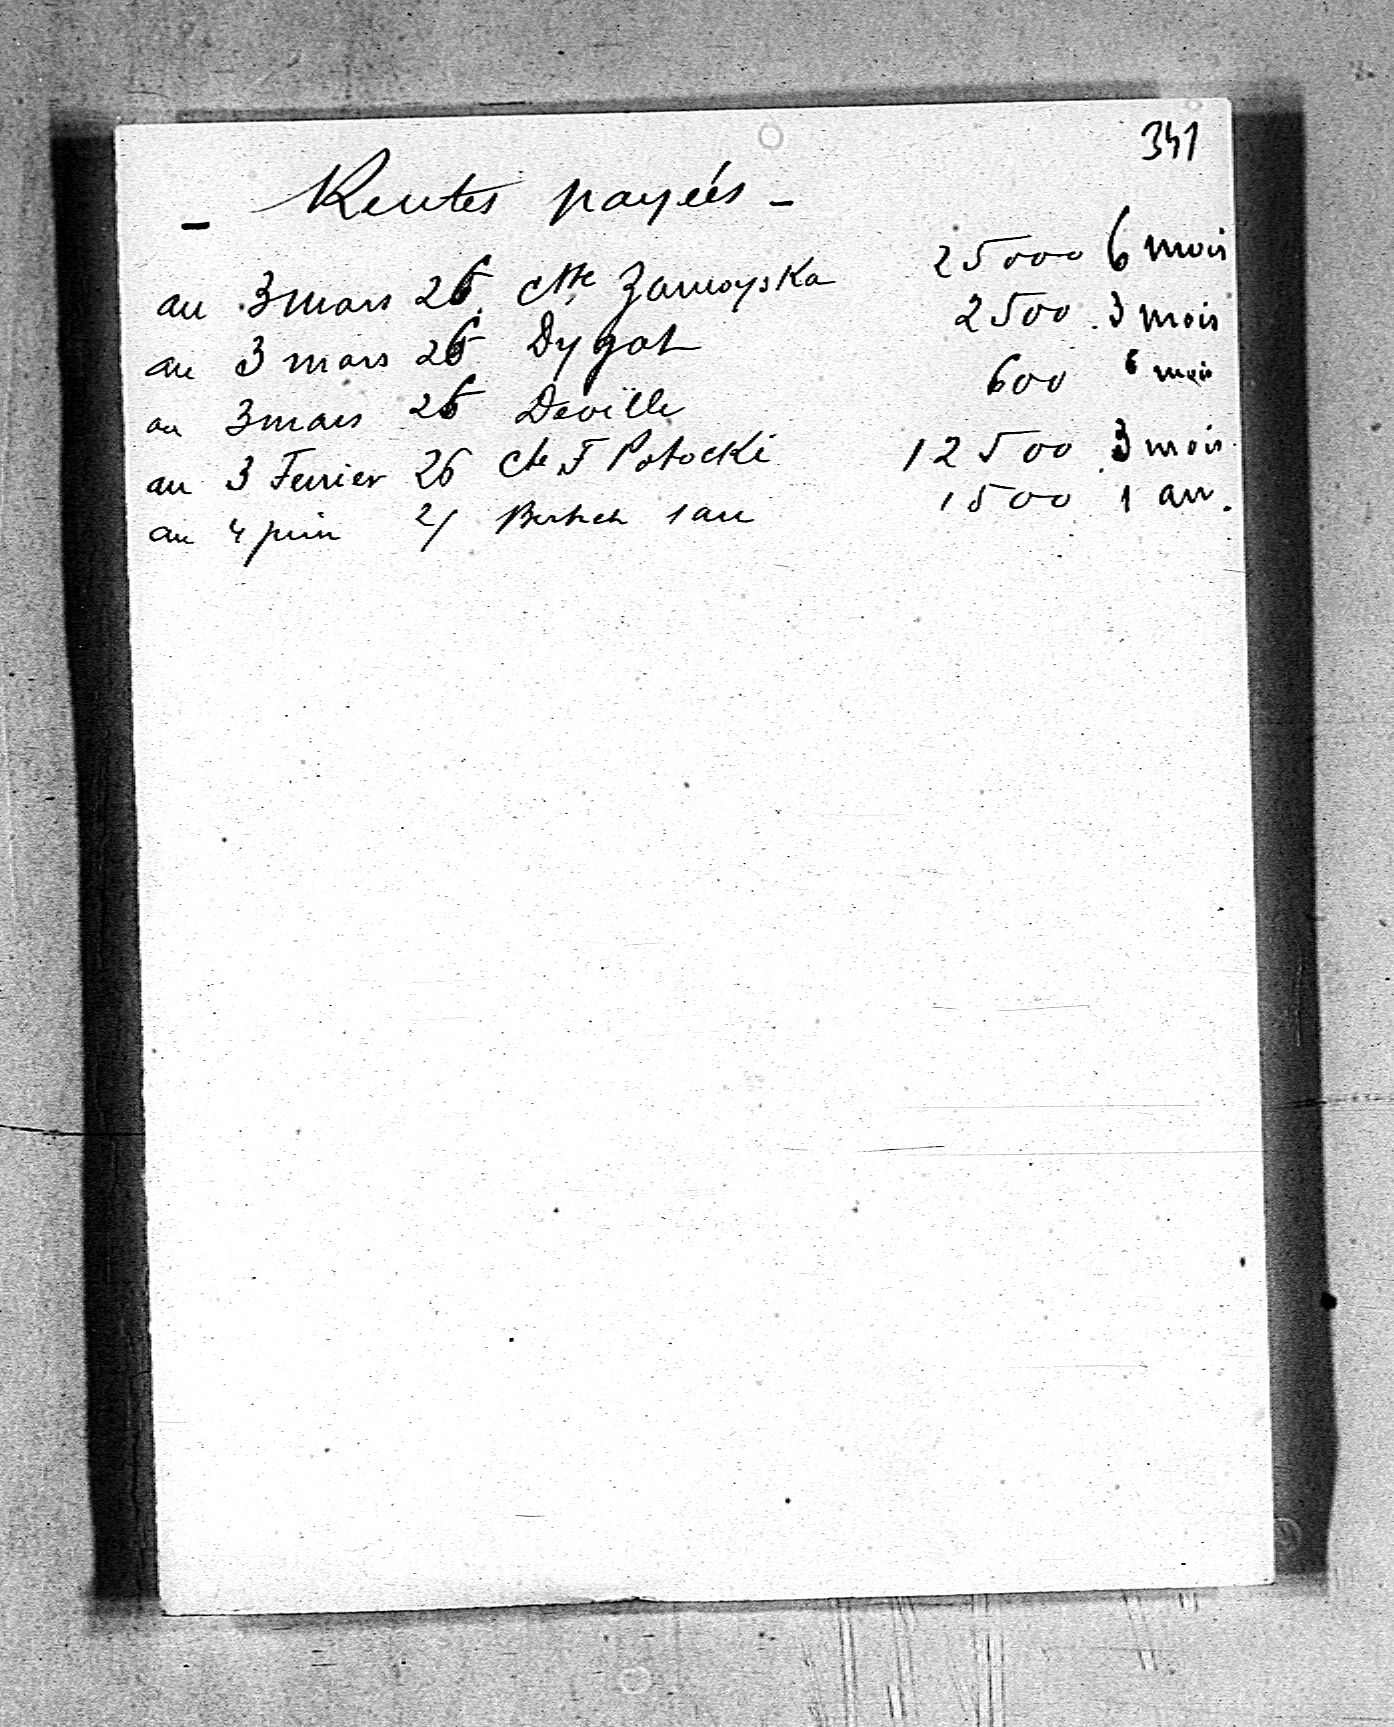 341
- Rentes payeés -
au 3 mars 26 Ctte Zamoyska 25000 6 mois
au 3 mars 26 Dygat 2500 3 mois
au 3 mars 26 Deville 600 6 mois
au 3 Fevrier 26 Cte F Potocki 12500 3 mois
au 4 juin 1 an 1500 1 an.